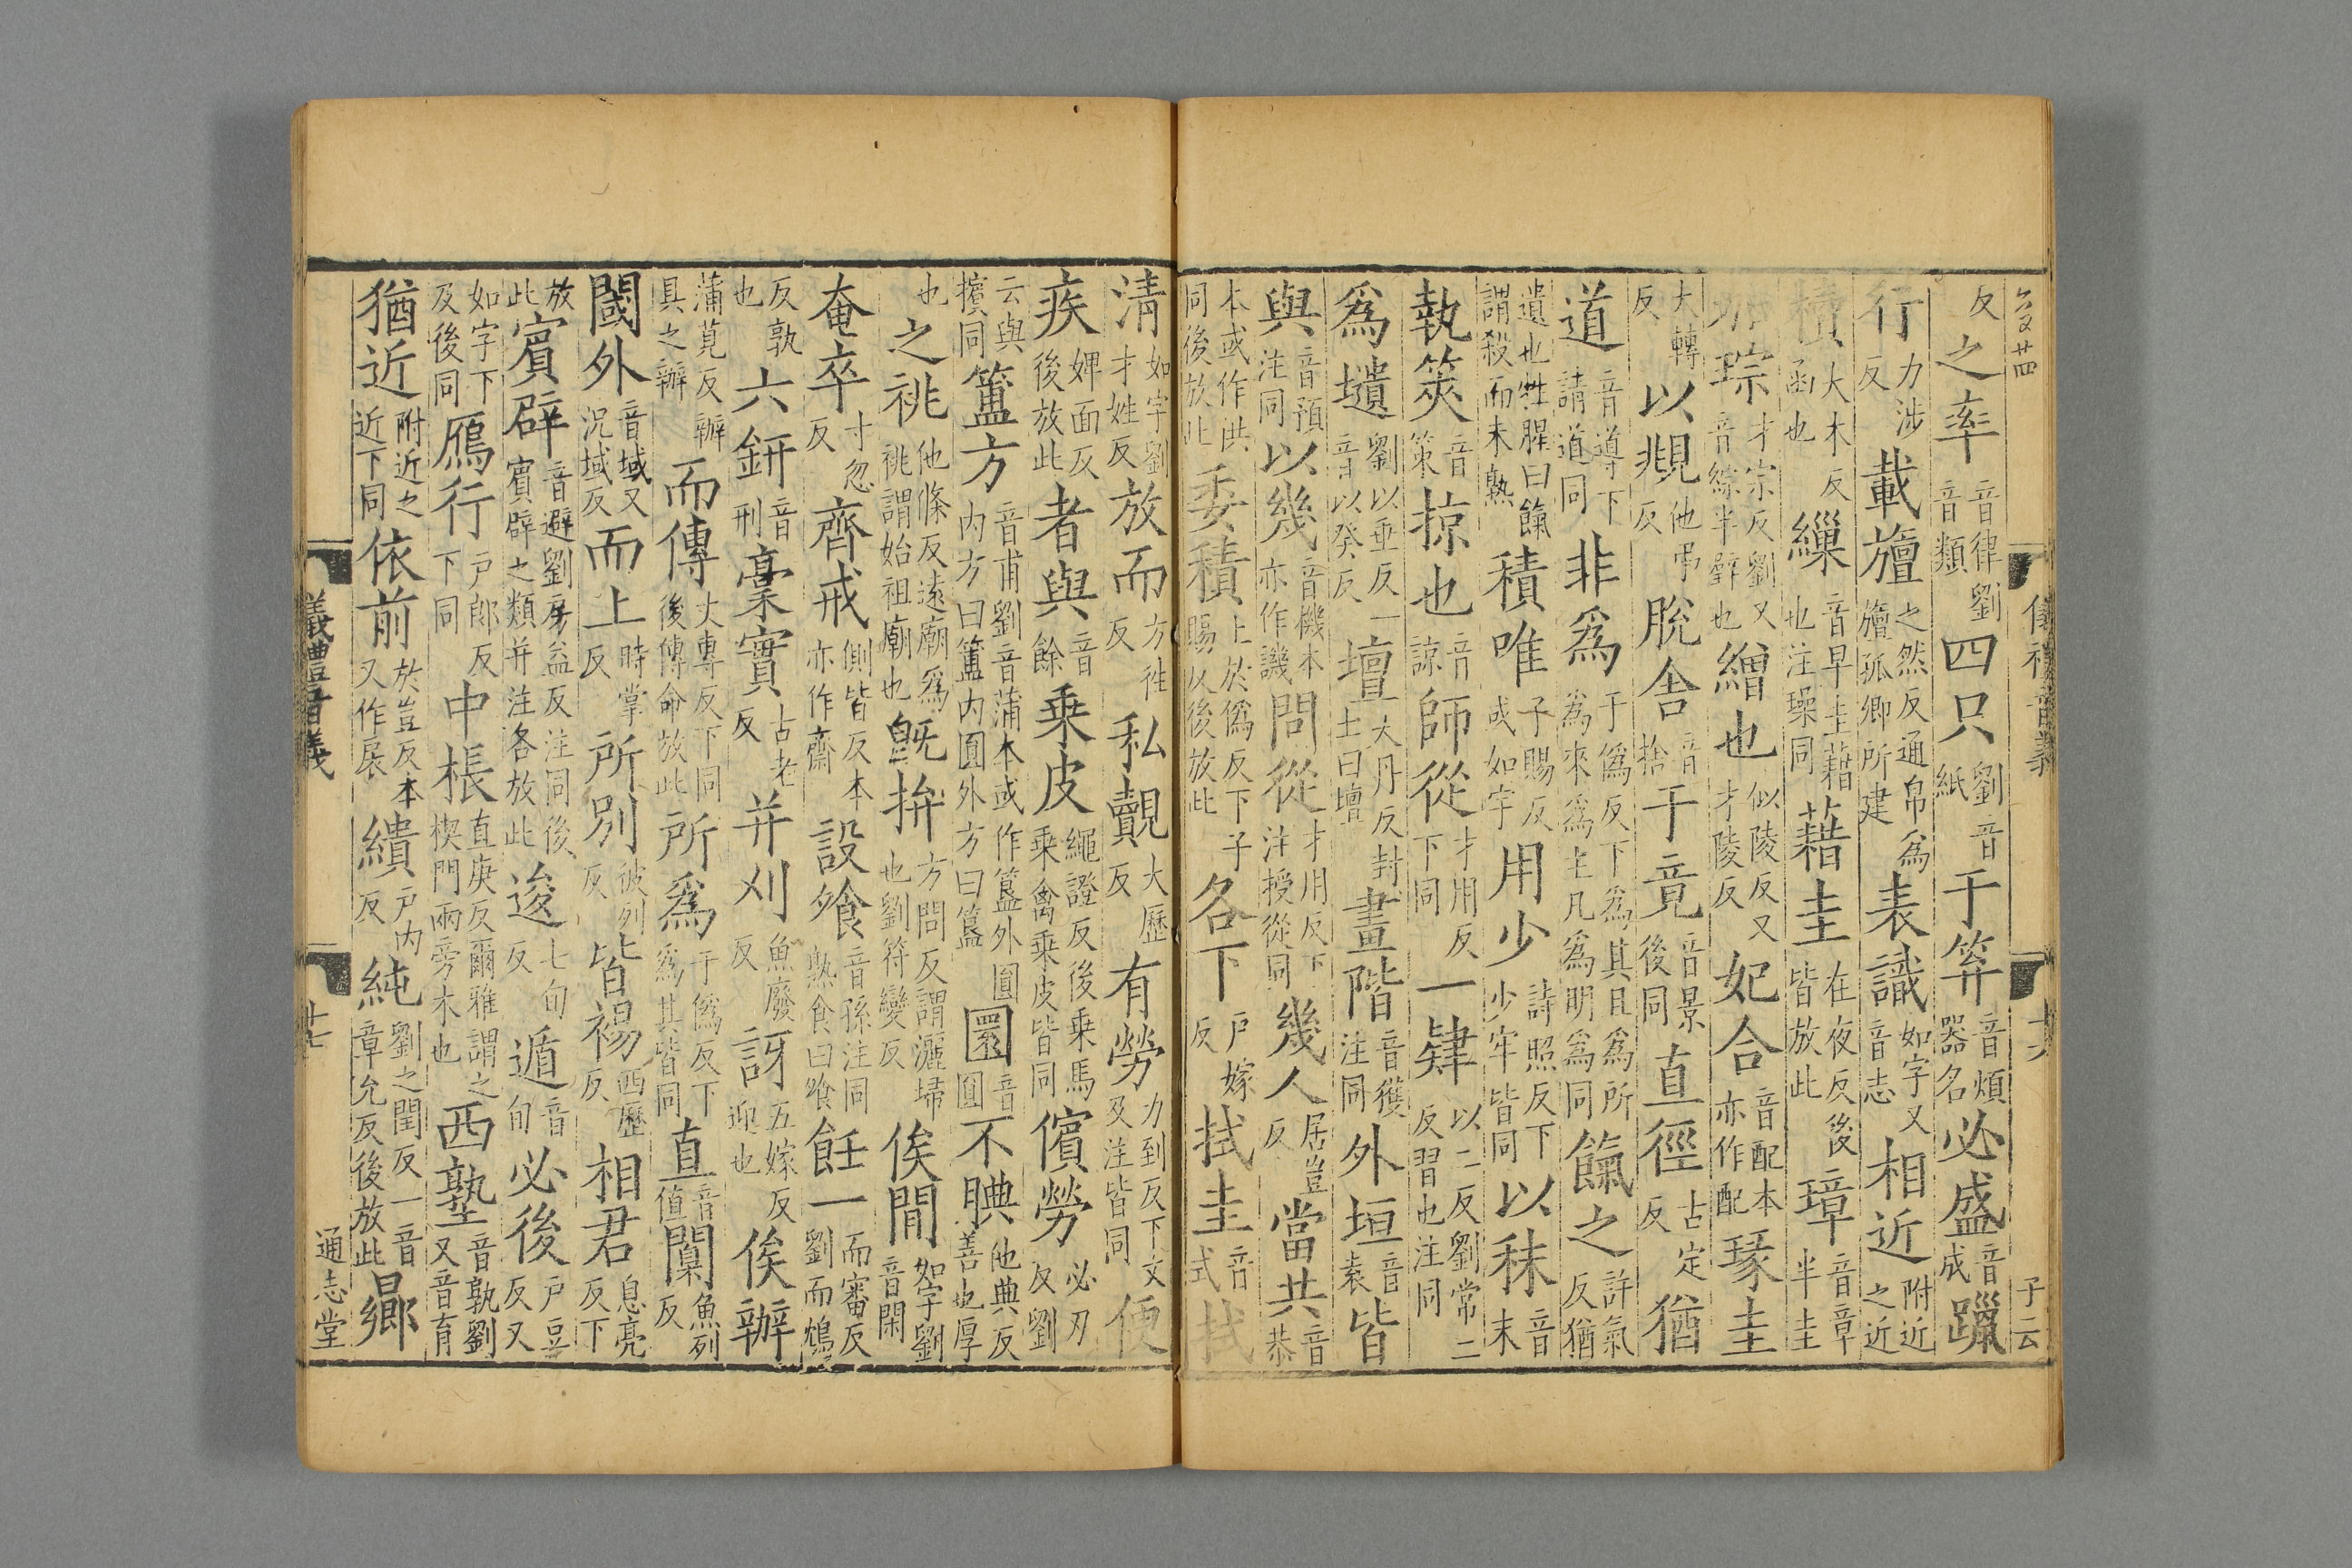 儀禮音義 十六 子云
反之率音律劉音類四只劉音紙于笲音煩器名必盛音成躐
行力涉反載旜之然反通帛爲旜孤卿所建表識如字又音志相近附近之近
櫝大木反函也繅音早圭藉也注璪同藉圭在夜反後皆放此璋音章半圭
琮才宗反劉又音綜半璧也繒也似陵反又才陵反妃合音配本亦作配瑑圭
大轉反以覜他弔反脫舍音捨于竟音景後同直徑古定反猶
道音導下請道同非爲于僞反下爲其且爲所爲來爲主凡爲明爲同餼之許氣反猶
遺也牲腥曰餼謂殺而未熟積唯子賜反或如字用少詩照反下少牢皆同以秣音末
執筴音策掠也音諒師從才用反下同一肄以二反劉常二反習也注同
爲壝劉以垂反一音以癸反壇大丹反封土曰壇畫階音獲注同外垣音袁皆
與音預注同以幾音機本亦作譏問從才用反下注授從同幾人居豈反當共音恭
本或作供同後放此委積上於僞反下子賜反後放此各下戶嫁反拭圭音式拭
清如字劉才姓反放而方往反私覿大歷反有勞力到反下文及注皆同便
疾婢面反後放此者與音餘乘皮繩證反後乘馬乘禽乘皮皆同儐勞必刃反劉
云與擯同簠方音甫劉音蒲本或作簋外圓內方曰簠內圓外方曰簋圜音圓不腆他典反善也厚
也之祧他條反遠廟爲祧謂始祖廟也旣拚方問反謂灑埽也劉符變反俟閒如字劉音閑
奄卒寸忽反齊戒側皆反本亦作齋設飧音孫注同熟食曰飧飪一而審反劉而鴆
反孰也六鉶音刑稾實古老反并刈魚廢反訝五嫁反迎也俟辦
蒲莧反辦具之辦而傳丈專反下同後傳命放此所爲于僞反下爲其皆同直音值闑魚列反
閾外音域又況域反而上時掌反所別彼列反皆裼西歷反相君息亮反下
放此賓辟音避劉房益反注同後賓辟之類并注各放此逡七旬反遁音旬必後戶豆反又
如字下及後同鴈行戶郎反下同中棖直庚反爾雅謂之楔門兩旁木也西塾音孰劉又音育
猶近附近之近下同依前於豈反本又作扆繢戶內反純劉之閏反一音章允反後放此曏
儀禮音義 十七 通志堂